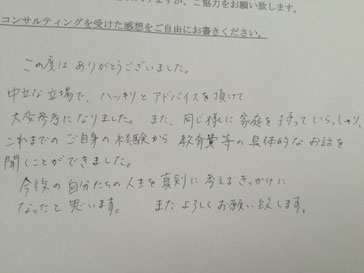 ますが、ご協力をお願い致します。
コンサルティングを受けた感想をご自由にお書きください。
この度はありがとうございました。
中立な立場で、ハッキリとアドバイスを頂けて
大変参考になりました。また、同じ様に家庭を持っていらっしゃり、
これまでのご自身の経験から教育費等の具体的なお話を
聞くことができました。
今後の自分たちの人生を真剣に考えるきっかけに
なったと思います。 またよろしくお願い致します。